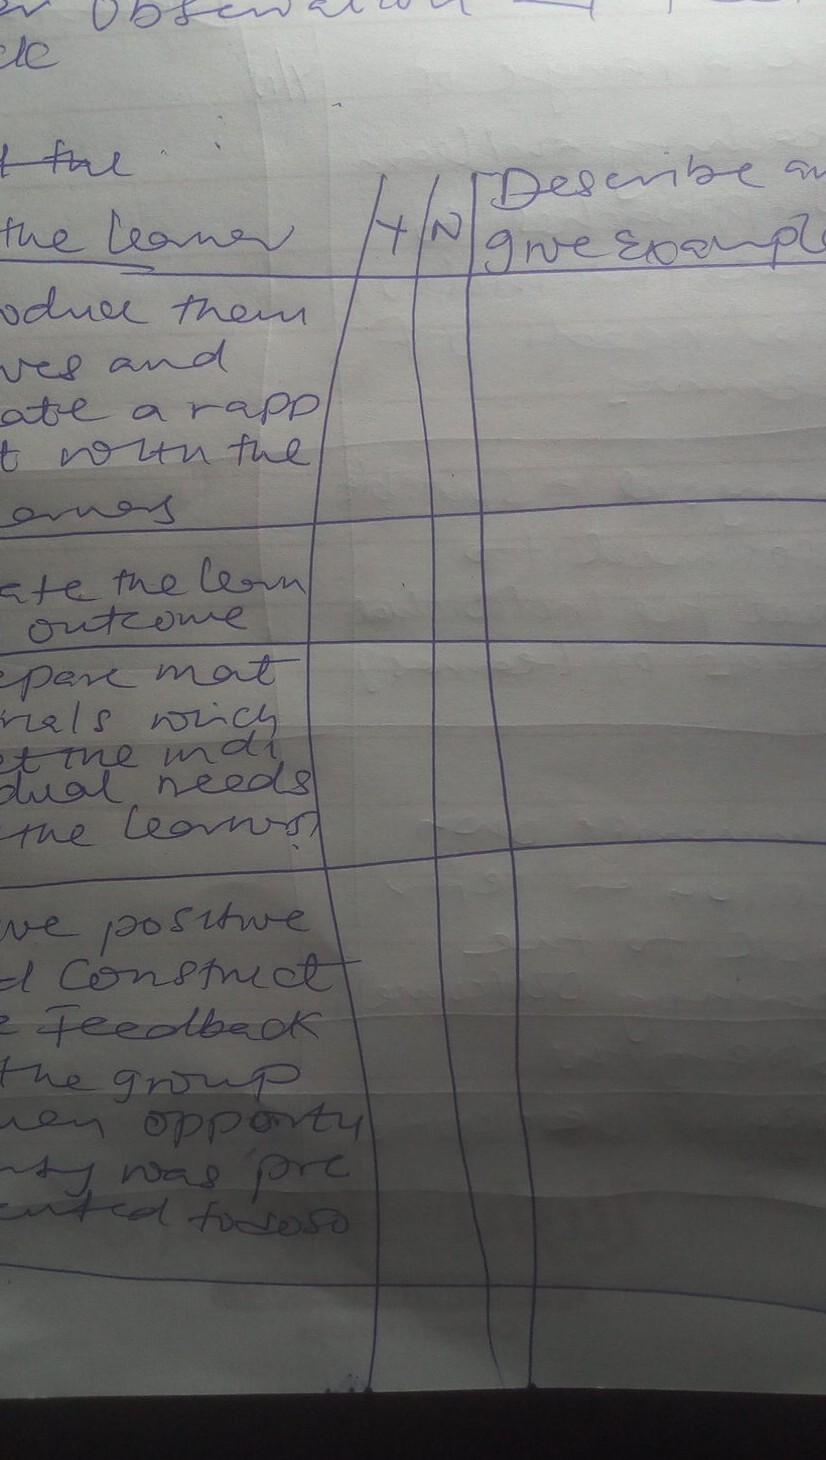 Observation
the
the learner Y N Describe an
give Exampl
oduce them
ves and
ate a rapp
t with the
earners
ate the learn
outcome
epare mat
rials which
et the indi
dual needs
the learners?
ve positive
d Construct
e Feedback
the group
hen opportu
nity was pre
ented to do so